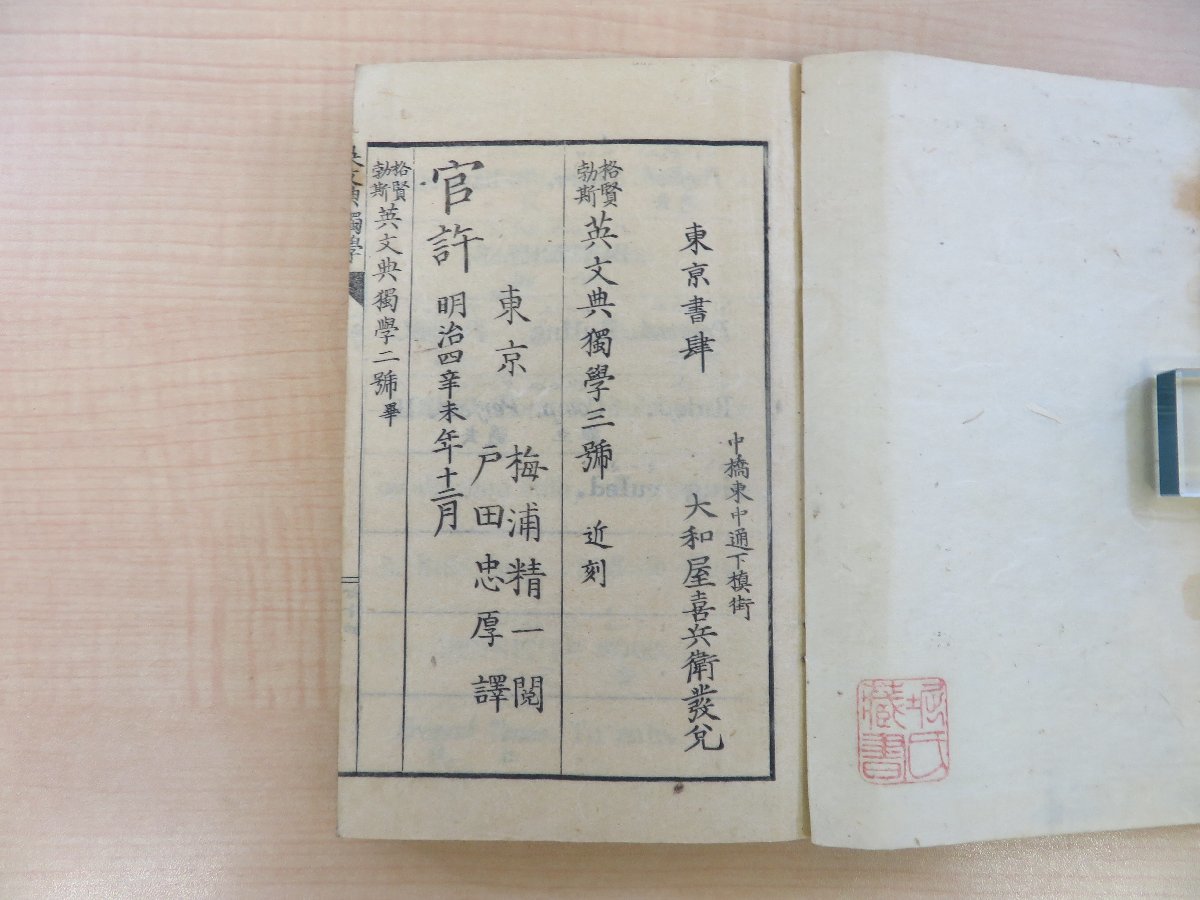 東京書肆
中橋東中通下槇街
大和屋喜兵衛發兌
格賢勃斯英文典獨學三號 近刻
官許 明治四辛未年十二月
東京 梅浦精一閲
戸田忠厚譯
格賢勃斯英文典獨學二號畢
英文典獨學
藏書